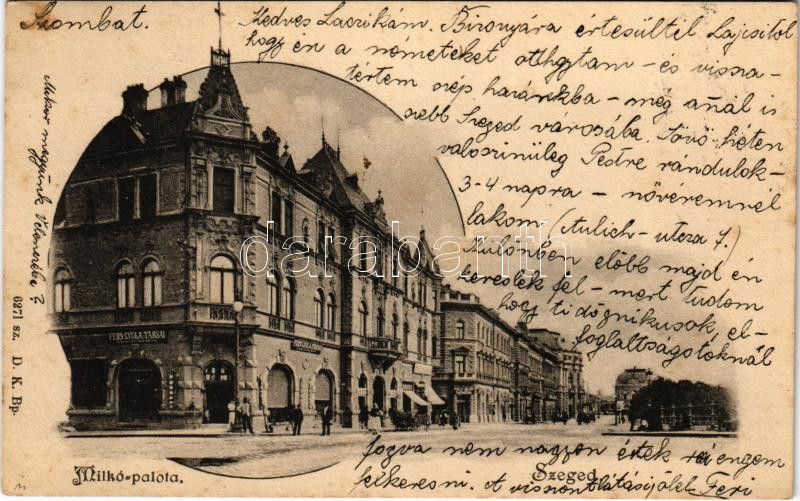 Szombat.
Kedves Laczikám. Bizonyára értesültél Lajcsitol
hogy én a németeket otthgytam - és vissza-
tértem szép hazánkba - még annál is
szebb Szeged városába. Jövő héten
valoszinüleg Pestre rándulok -
3-4 napra - nővéremnél
lakom (Aulich-utcza 7.)
Külonben előbb majd én
kereslek fel - mert tudom
hogy ti dözsnikusok, el-
foglaltságotoknál
fogva nem nagyon értek rá engem
felkeresni. A viszontlátásig ölel Feri
Mikor megyünk Velenczébe?
darabanth
FEHN GYULA TÁRSAI
6271 sz. D. K. Bp.
Milkó-palota.
Szeged.